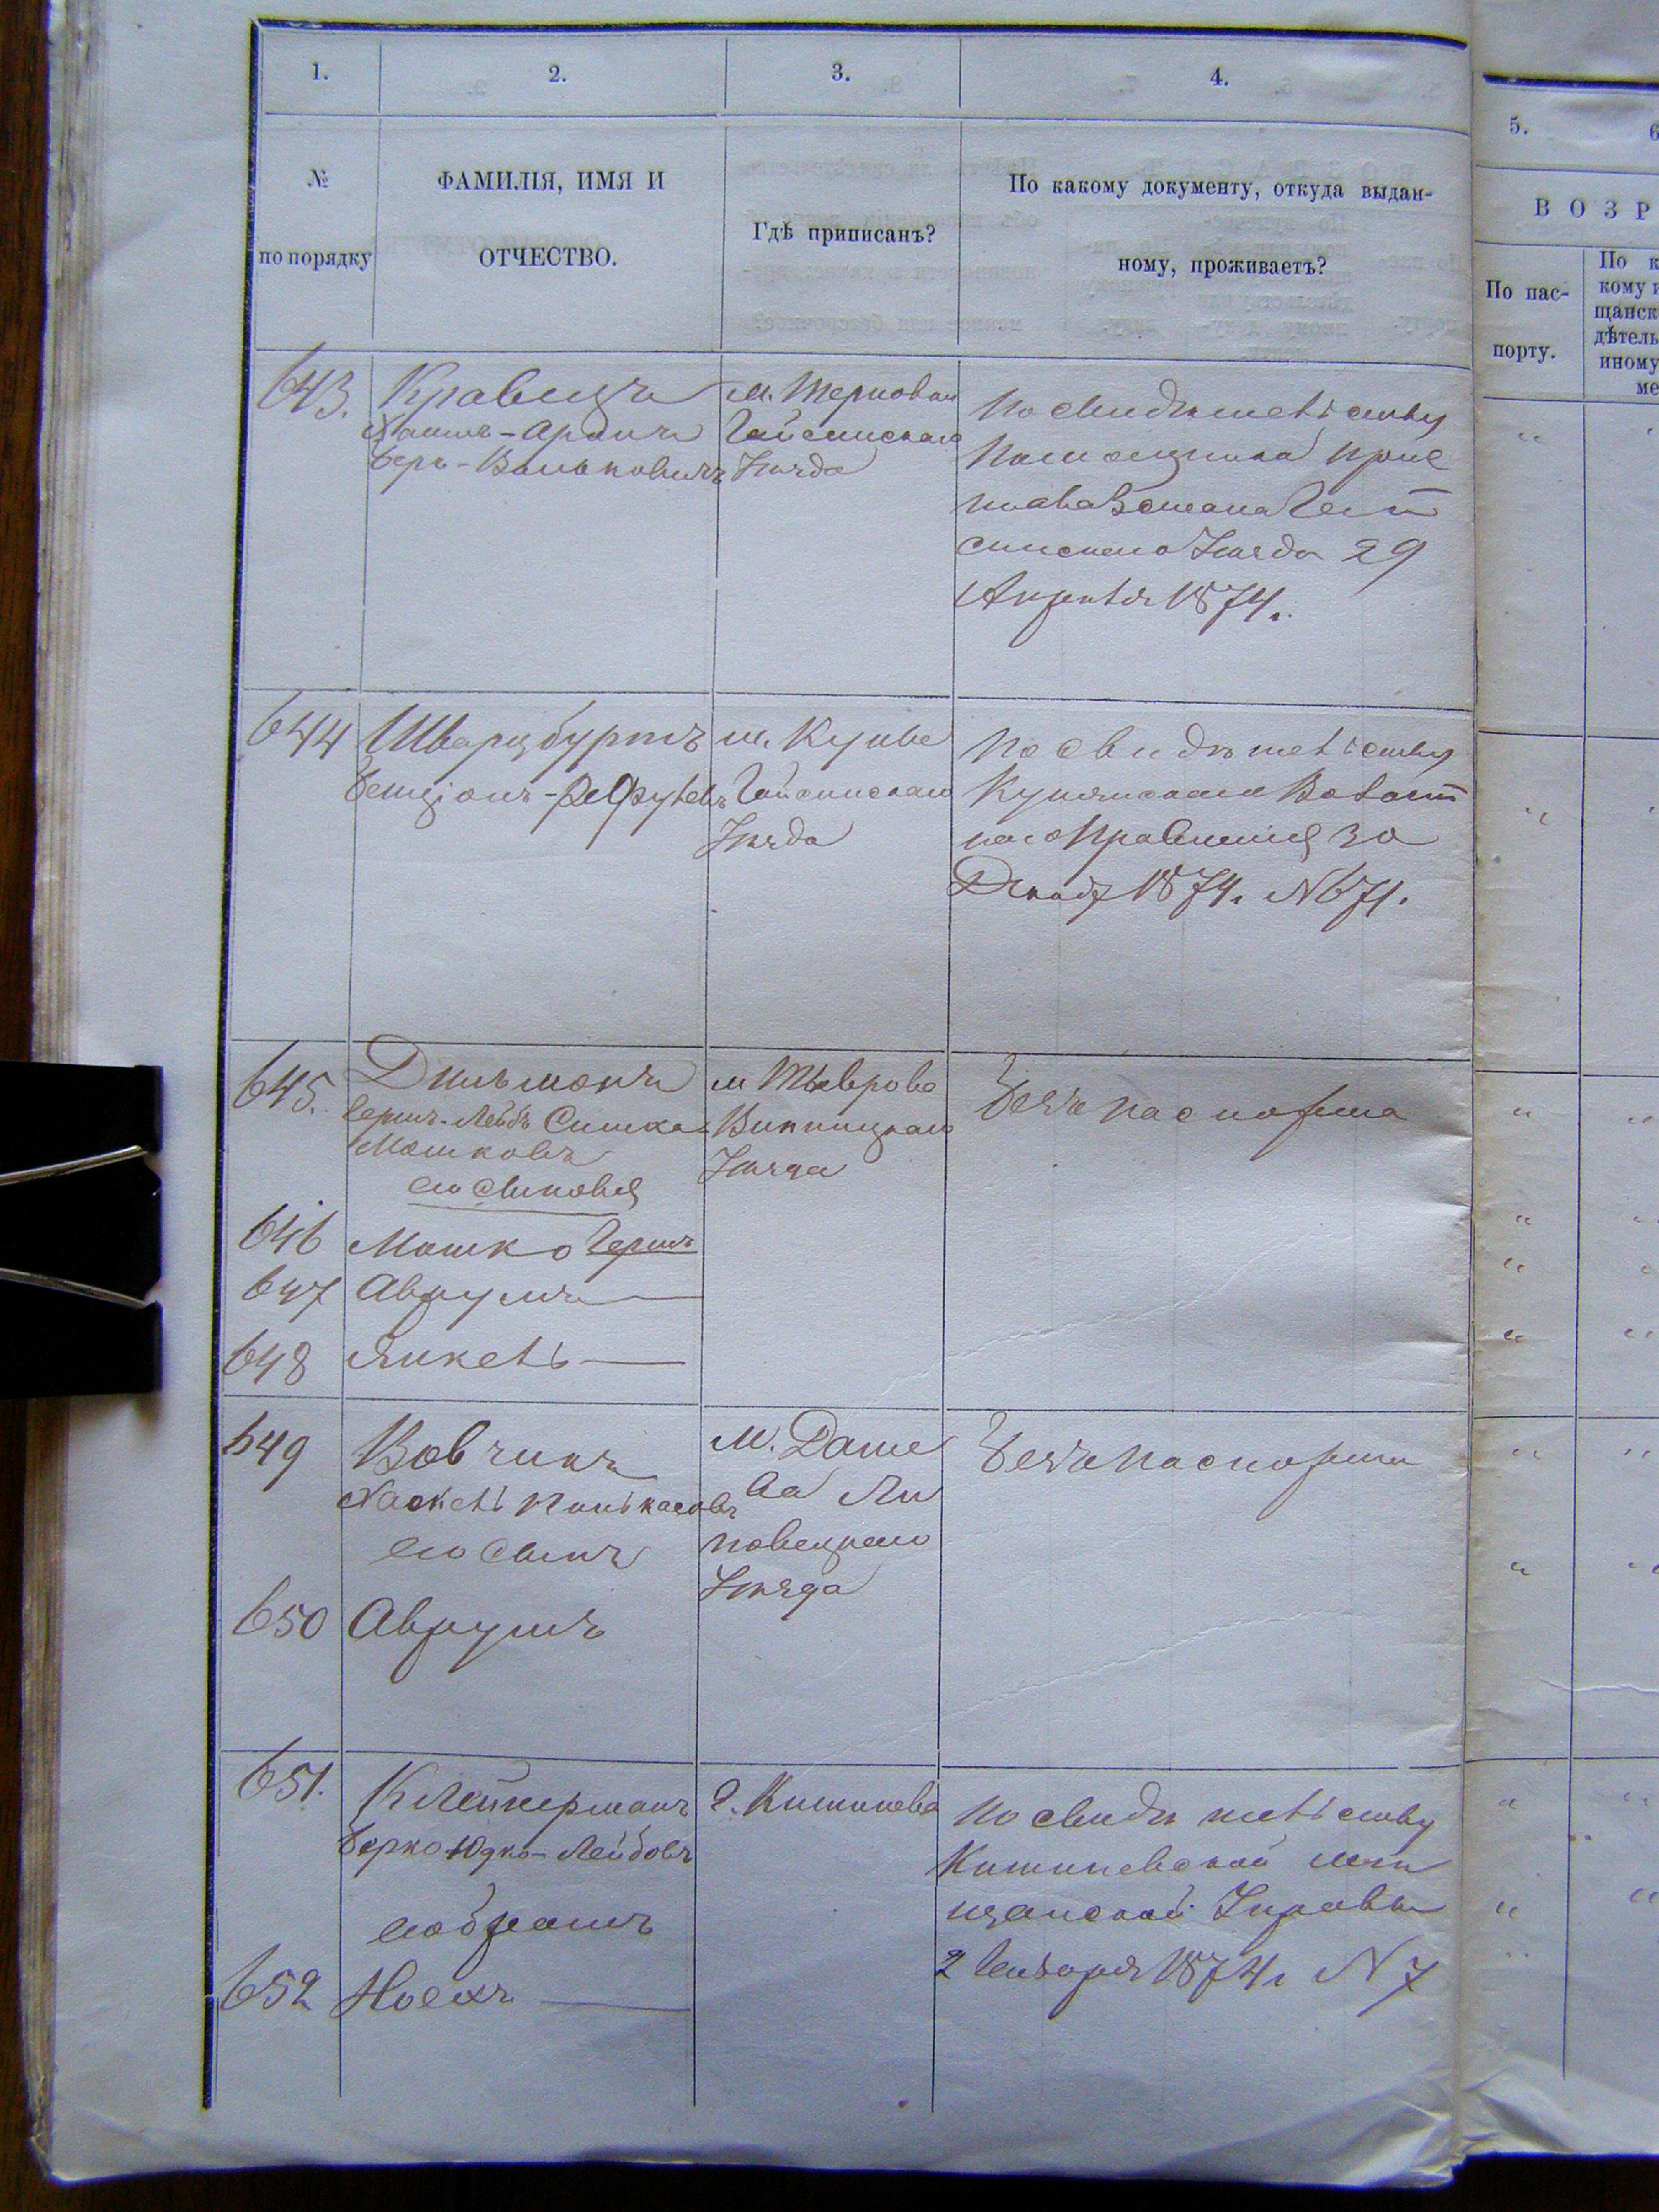 1.
2.
3.
4.
5.
6
№
по порядку
ФАМИЛІЯ, ИМЯ И
ОТЧЕСТВО.
Гдѣ приписанъ?
По какому документу, откуда выдан-
ному, проживаетъ?
ВОЗР
По пас-
порту.
По к
кому и
щанск
дѣтель
иному
ме
643.
Кравецъ
Хаимъ-Аронъ
Беръ-Вольковичъ
м. Терновки
Гайсинскаго
Уѣзда
По свидѣтельству
Помощника Прис
тава Стана Гай
синскаго Уѣзда 29
Апрѣля 1874.
644
Шварцбуртъ
Бенціонъ-
м. Куны
Гайсинскаго
Уѣзда
По свидѣтельству
Кунянскаго Волост
наго Правленія 30
Декаб 1874. № 671.
645.
Дильмонъ
Гершъ-Лейбъ Симха
Мошковъ
его сыновья
м Тыврова
Винницкаго
Уѣзда
Безъ паспорта
646
Мошко Гершъ
647
Аврумъ —
648
Янкель —
649
Вовчикъ
Хаскель Пинькасовъ
его сынъ
м. Даше
ва Ли
повецкаго
Уѣзда
Безъ паспорта
650
Аврумъ
651.
Клейнерманъ
Берко Юдко-Лейбовъ
его братъ
г. Кишинева
По свидѣтельству
Кишиневской мѣ
щанской Управы
2 Генваря 1874г № 7
652
Ноехъ —